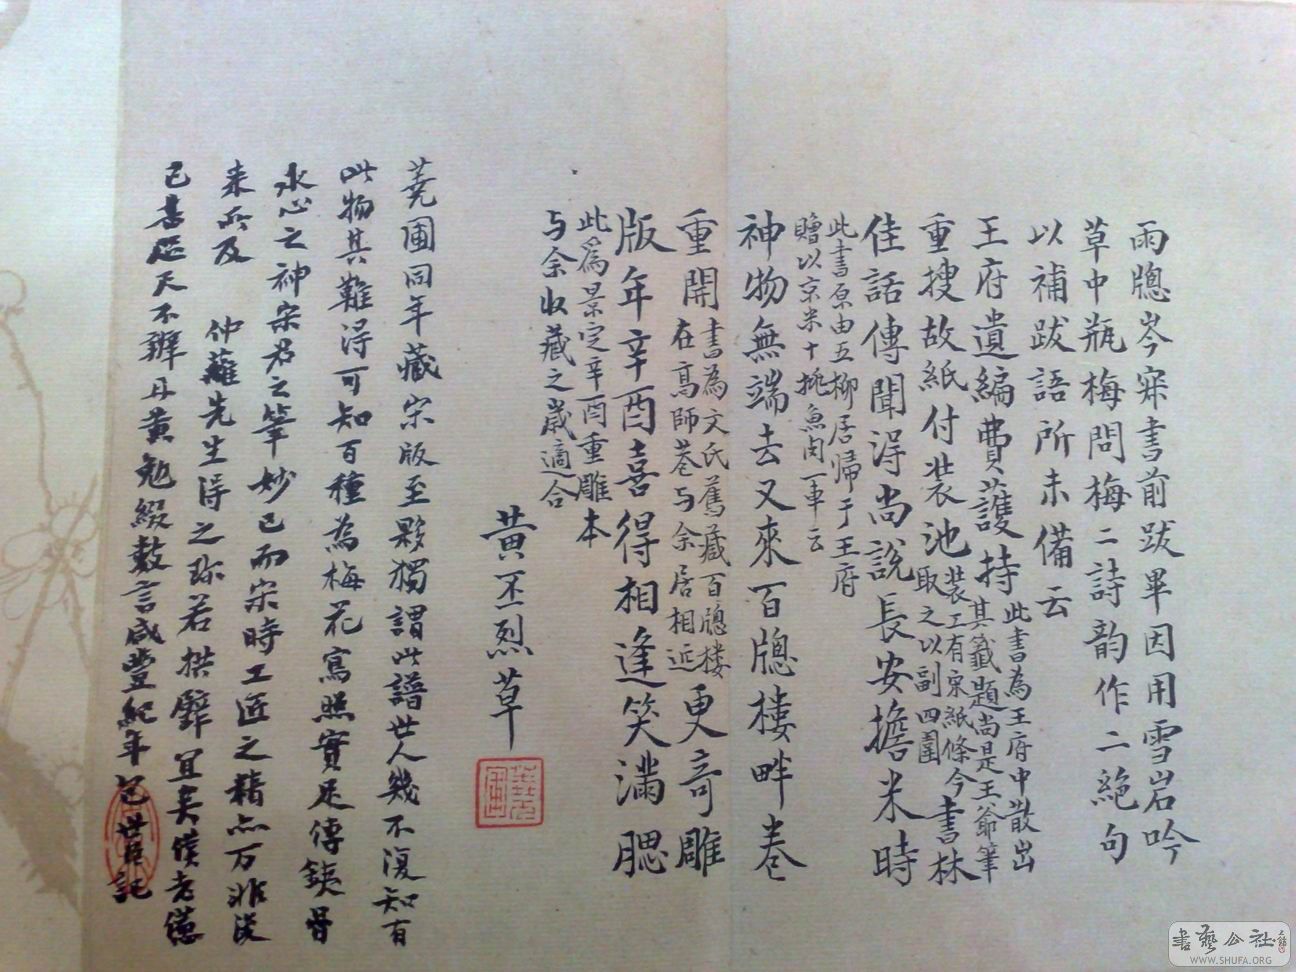 雨牕岑寂書前跋畢因用雪岩吟
草中瓶梅問梅二詩韵作二絶句
以補跋語所未備云
王府遺編費護持此書為王府中散出其籤題尚是王爺筆
重搜故紙付裝池裝工有宋紙條今取之以副四圍書林
佳話傳聞淂尚說長安擔米時
此書原由五柳居歸于王府
贈以京米十挑魚肉一車云
神物無端去又來百牕樓畔巷
重開書為文氏舊藏百牕楼在高師巷与余居相近更奇雕
版年辛酉喜得相逢笑滿腮
此為景定辛酉重雕本
与余收藏之嵗適合
黃丕烈草
蕘圃同年藏宋版至夥獨謂此譜世人幾不復知有
此物其難淂可知百種為梅花寫照實足傳鐵骨
冰心之神宋君之筆妙已而宋時工匠之精亦万非後
来所及 仲蘺先生淂之珎若拱璧宜矣僕老憊
已書昏天不辨丹黄勉綴数言咸豐紀年包世臣記
書藝公社
WWW.SHUFA.ORG